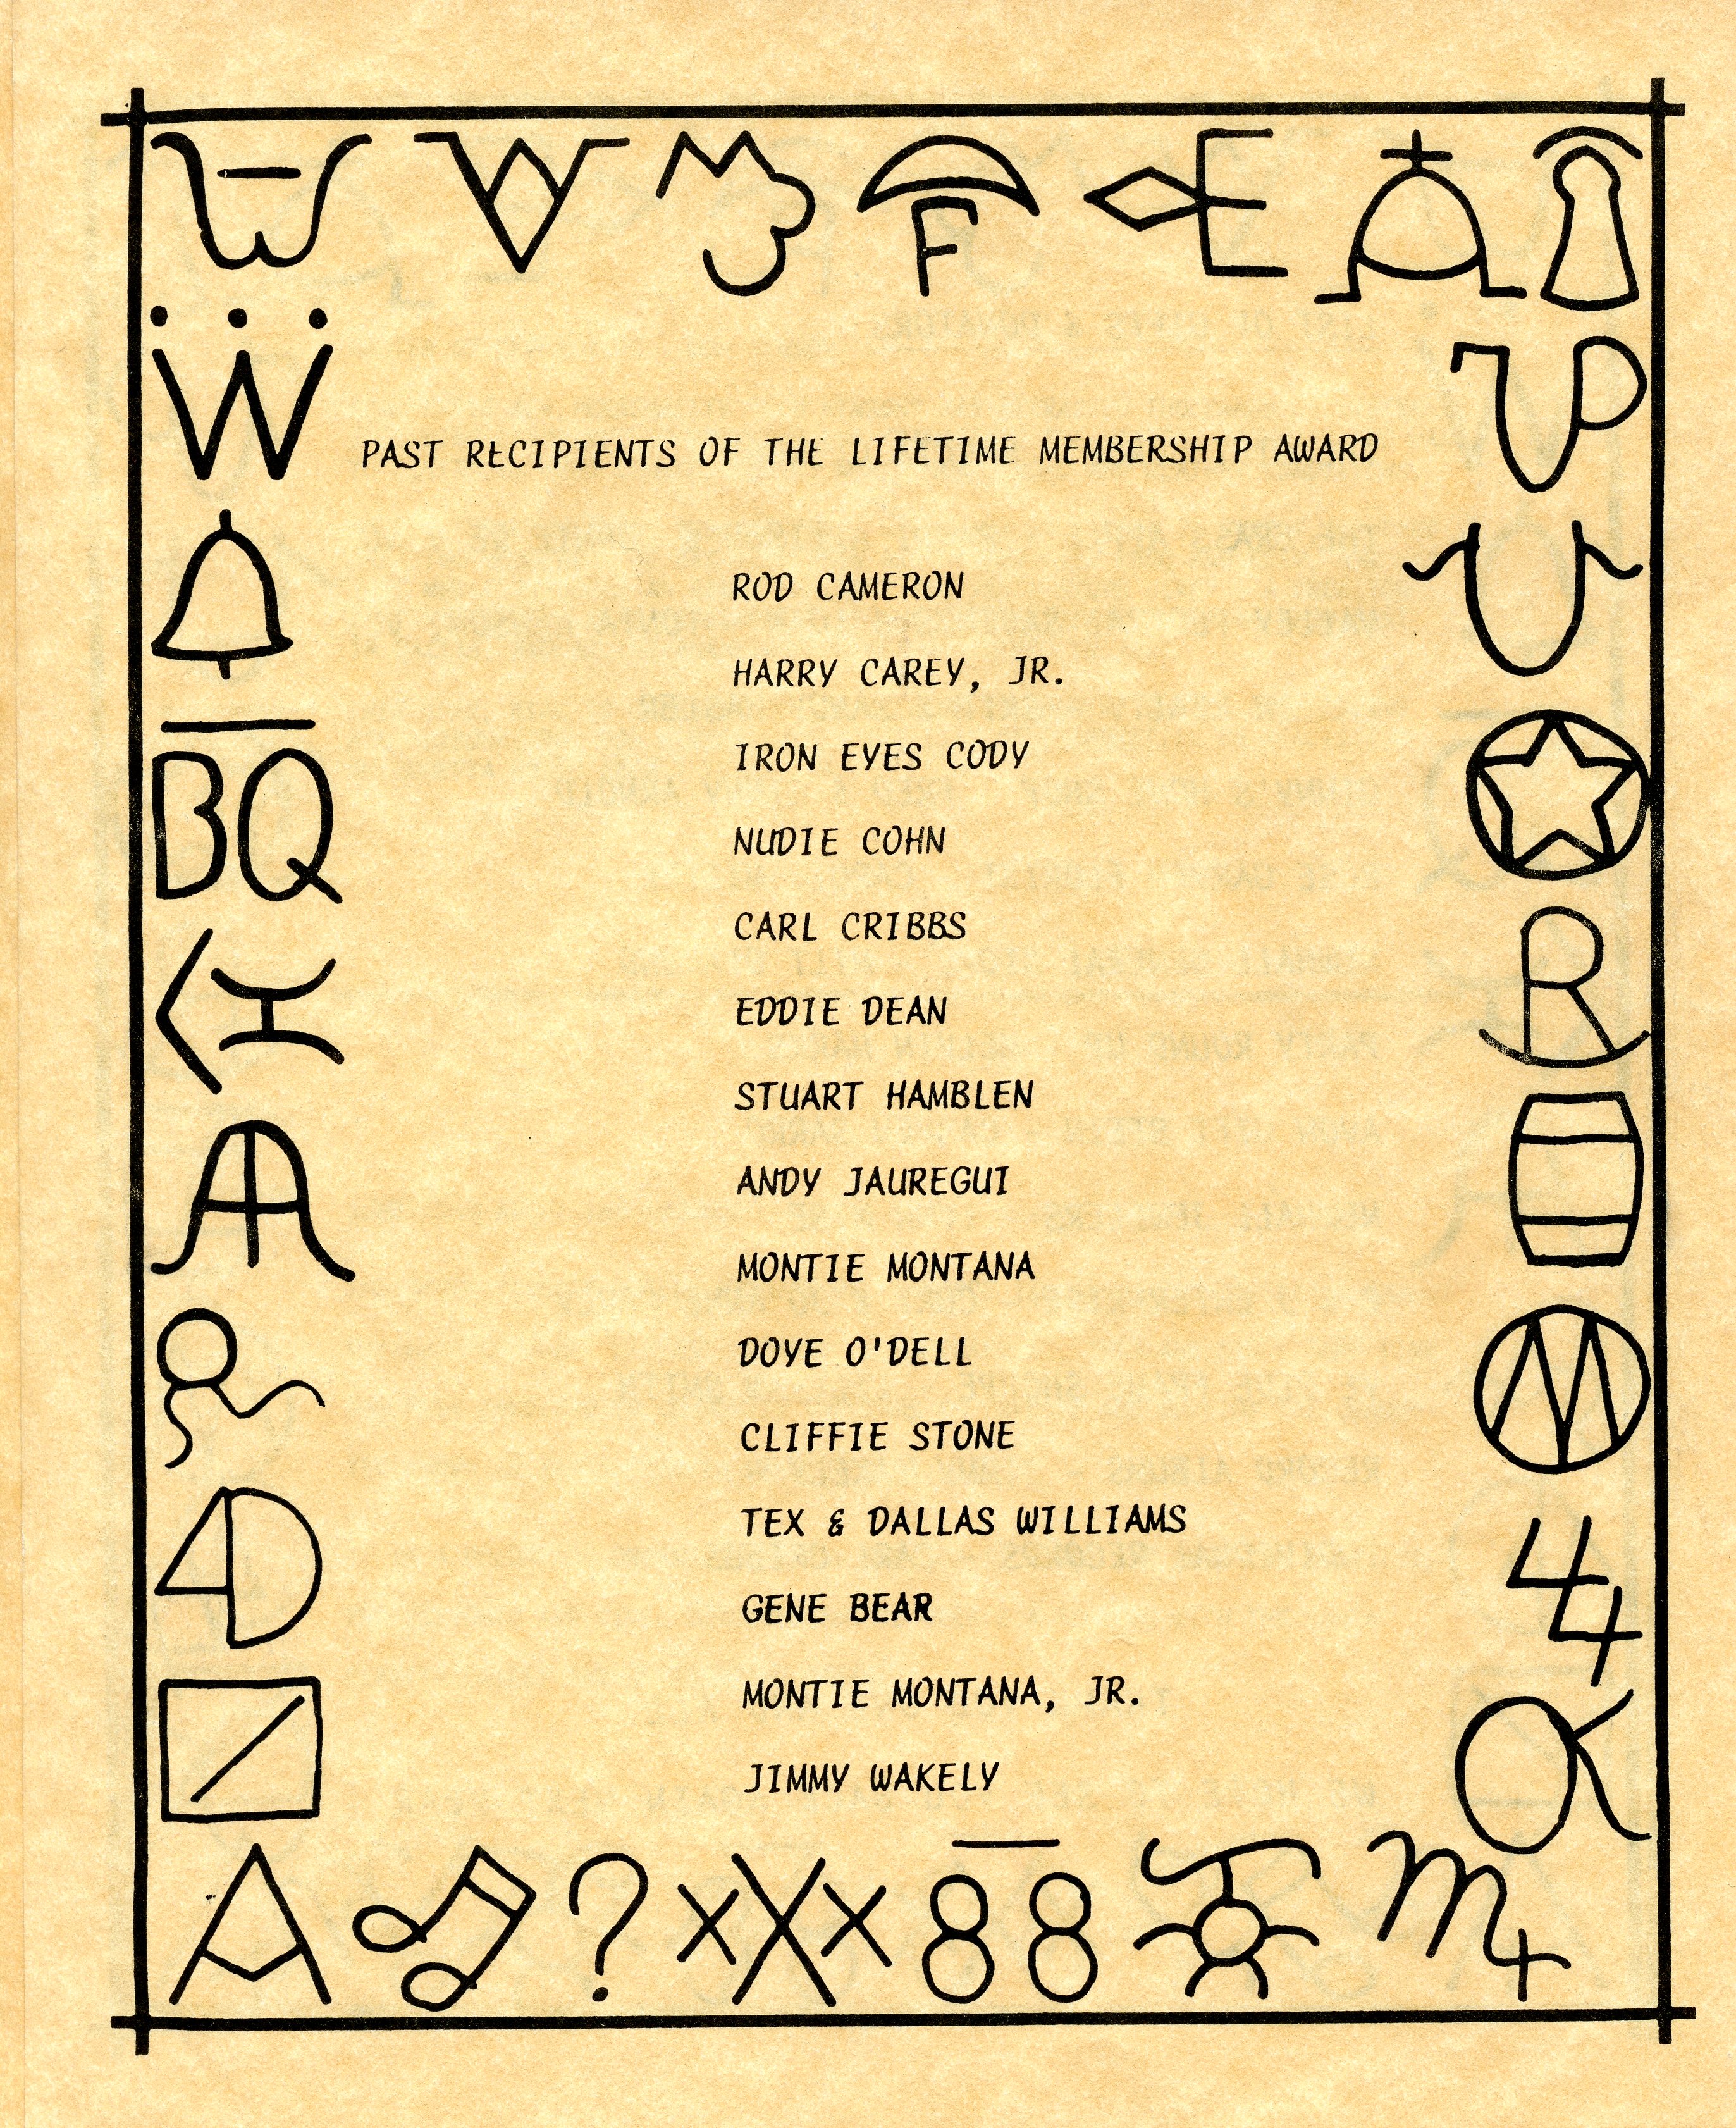 PAST RECIPIENTS OF THE LIFETIME MEMBERSHIP AWARD
ROD CAMERON
HARRY CAREY, JR.
IRON EYES CODY
NUDIE COHN
CARL CRIBBS
EDDIE DEAN
STUART HAMBLEN
ANDY JAUREGUI
MONTIE MONTANA
DOYE O'DELL
CLIFFIE STONE
TEX & DALLAS WILLIAMS
GENE BEAR
MONTIE MONTANA, JR.
JIMMY WAKELY